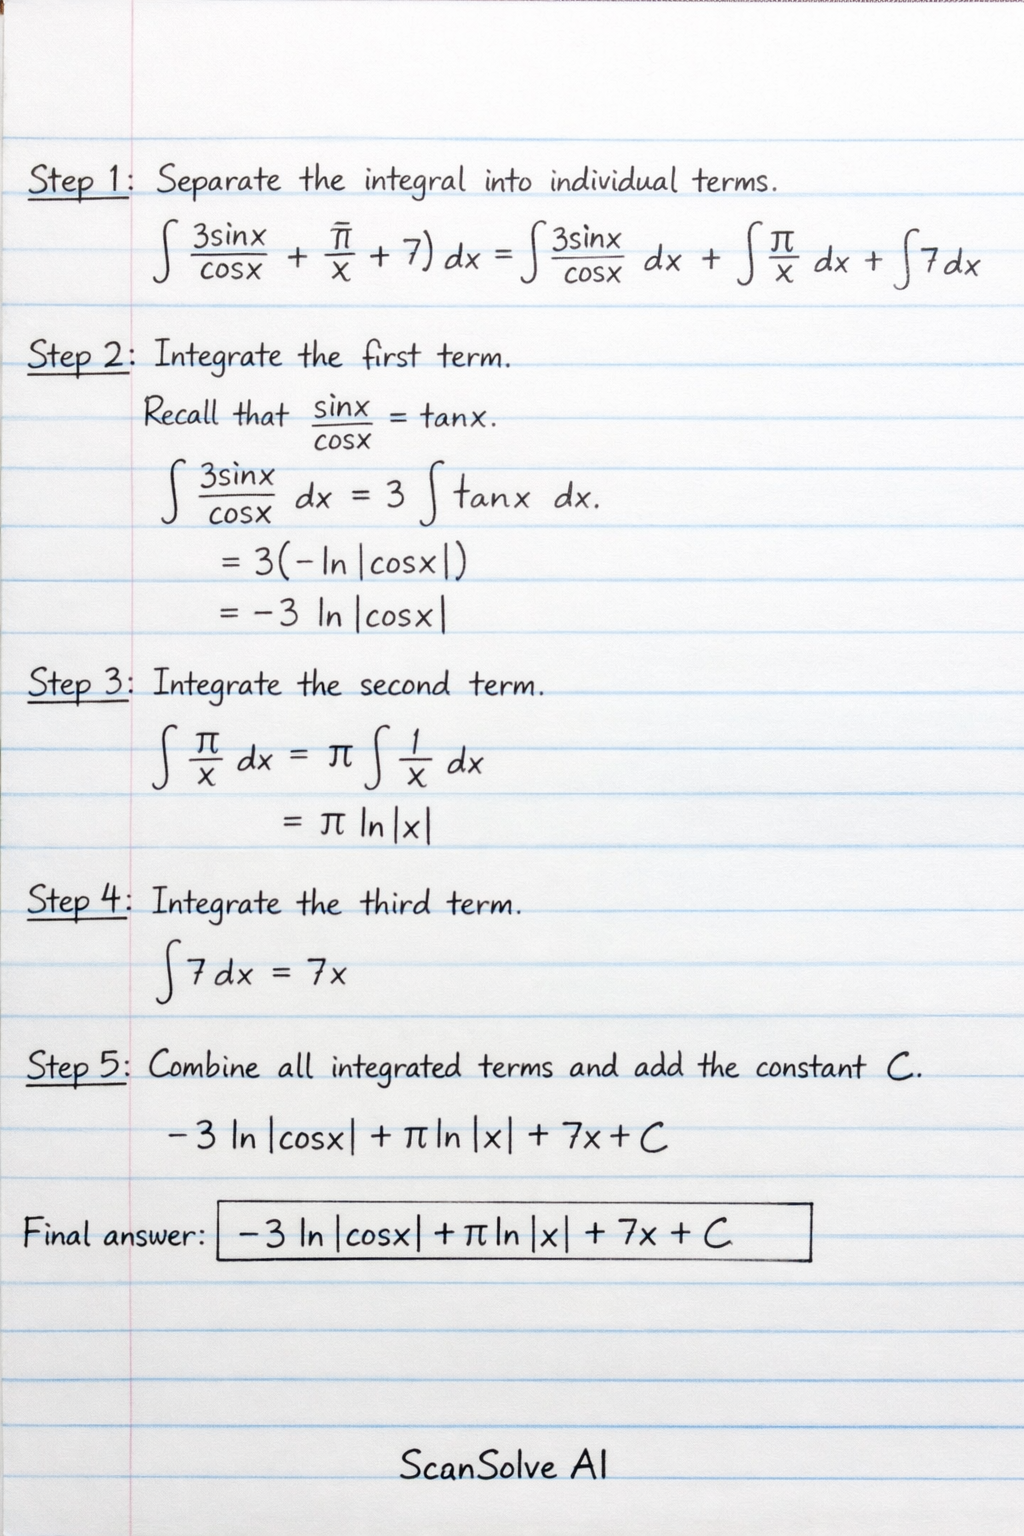 Step 1: Separate the integral into individual terms.
∫ 3sinx/cosx + π̄/x + 7) dx = ∫ 3sinx/cosx dx + ∫ π/x dx + ∫ 7 dx
Step 2: Integrate the first term.
Recall that sinx/cosx = tanx.
∫ 3sinx/cosx dx = 3 ∫ tanx dx.
= 3(-ln |cosx|)
= -3 ln |cosx|
Step 3: Integrate the second term.
∫ π/x dx = π ∫ 1/x dx
= π ln|x|
Step 4: Integrate the third term.
∫ 7 dx = 7x
Step 5: Combine all integrated terms and add the constant C.
-3 ln |cosx| + π ln |x| + 7x + C
Final answer: -3 ln |cosx| + π ln |x| + 7x + C
ScanSolve AI